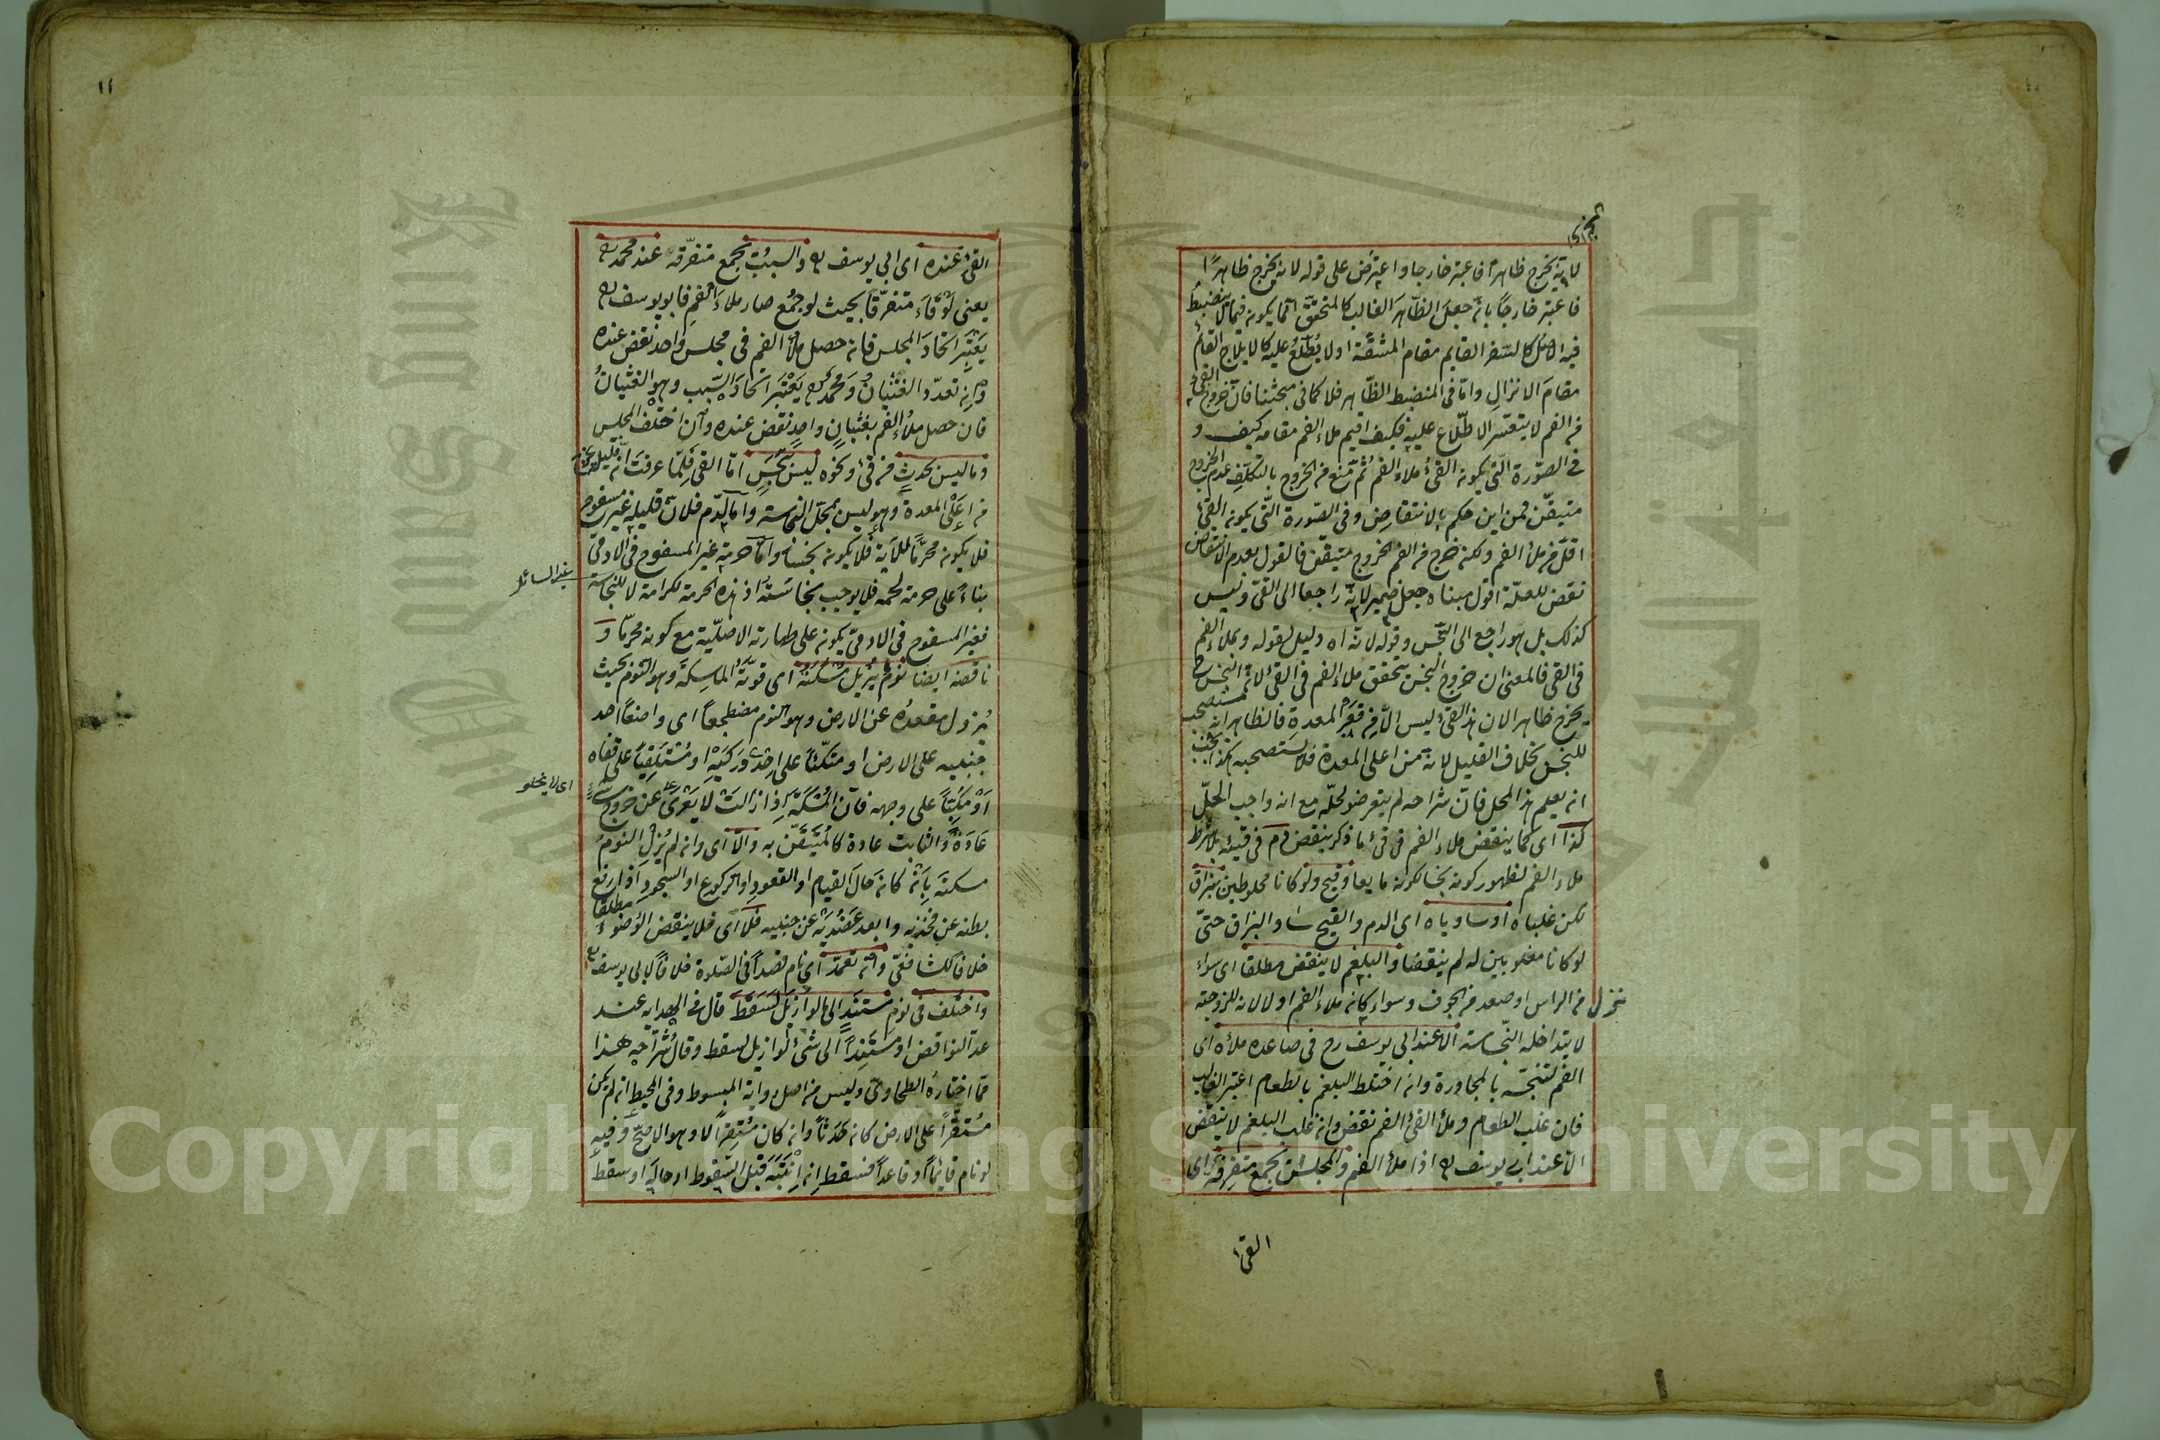 لانه يخرج ظاهرًا فاعتبر خارجا واعترض على قوله لانه يخرج ظاهرًا
فاعتبر خارجًا بانه جعل الظاهر الغالب كالمتحقق انما يكون فيما لا ينضبط
فيه الاصل كالسفر القايم مقام المشقة او لا يُطّلعُ عليه كالايلاج القائم
مقام الانزال واما في المنضبط الظاهر فلا كما في مبحثنا فان خروج القئ
من الفم لا يتعسّر الاطّلاع عليه فكيف اقيم ملاء الفم مقامه كيف و
في الصّورة الّتي يكون القئُ ملاء الفم ثم مُنع من الخروج بالتكلّف عدم الخروج
متيقّن فمن اين حكم بالانتقاض وفي الصّورة الّتي يكون القئ
اقلّ من ملأ الفم ولكن خرج من الفم الخروج متيقّن فالقول بعدم الانتقاض
نقض للعلّة اقول مبناه جعل ضمير لانّه راجعا الى القئ وليس
كذلك بل هو راجع الى النّجس وقوله لانّه اه دليل لقوله وبملاء الفم
في القئ فالمعنى ان خروج النجس يتحقق بملاء الفم في القئ لانّ النجس ح
يخرج ظاهرا لان هذا القئ ليس الّا من قعر المعدة فالظاهر انه مستصحب
للنجس بخلاف القليل لانه من اعلى المعدة فلا يستصحبه هكذا يجب
ان يعلم هذا المحل فانّ شراحه لم يتعرضو لحلّه مع انه واجب الحلّ
كذا اى كما ينقض ملاء الفم في قئ ما ذكر ينقض دم في قيئه بلا شرط
ملاء الفم لظهور كونه نجسا لكونه مايعا وقيح ولو كانا مخلوطين ببزاق
لكن غلباه او ساوياه اى الدم والقيح والبزاق حتىّ
لو كانا مغلوبين له لم ينقضا والبلغم لا ينقض مطلقا اى سواء
نزل من الراس او صعد من الجوف وسواء كان ملاء الفم او لا لانه للزوجته
لا يتداخله النّجاسة الّا عند ابي يوسف رح في صاعده ملأه اى
الفم لتنجسّه بالمجاورة وان اختلط البلغم بالطعام اعتبر الغالب
فان غلب الطعام وملأ القئ الفم نقض وان غلب البلغم لا ينقض
الّا عند ابي يوسف رح اذا ملأ الفم والمجلس يجمع متفرقه اى
القئ
١١
القئ عنده اى ابي يوسف رح والسببُ يجمع متفرّقه عند محمد رح
يعني لو قاء متفرّقا بحيث لو جُمُع صار ملاء الفم فابو يوسف رح
يعتبر اتحاد المجلس فانه حصل ملأ الفم في مجلس واحد نقض عنده
وان تعدّد الغثيانُ ومحمدٌ رح يعتبر اتحاد السّبب وهو الغثيانُ
فان حصل ملأُ الفم بغثيانٍ واحدٍ نقض عنده وان اختلف المجلس
وما ليس بحدثٍ من قئ ونحوه ليس بنجسٍ امّا القئ فلما عرفت انّ قليله يخرج
من اعلى المعدة وهو ليس بمحلّ النجاسة واما الدّم فلانّ قليله غير مسفوح
فلا يكون محرّمًا للآية فلا يكون نجسًا واما حرمة غير المسفوح في الادمي
بناءً على حرمة لحمه فلا يوجب نجاسته اذ هذه الحرمة لكرامة لا للنجاسة
يعني السائل
فغير المسفوح في الادمىّ يكون على طهارته الاصليّة مع كونه محرمّا و
ناقضه ايضا نوم يُزيل مُسكته اى قوّته الماسكة وهو النوم بحيث
يُزول مقعدُه عن الارض وهو النوم مضطجعاً اى واضعاً احد
جنبيه على الارض او متكئاً على احدى وركيه او مستلقياً على قفاه
او مكبّاً على وجهه فانّ المُسكة اذا زالت لا يعرى عن خروج شئ
اى لا يخلو
عادةً والثابت عادة كالمتيقّن به والاّ اى وان لم يُزل النومُ
مسكته بان كان حال القيام او القعود او الركوع او السجود اذا رفع
بطنه عن فخذيه وابعد عضديه عن جنبيه فلا اى فلا ينقض الوضوء مطلقا
خلافا للشافعىّ وان تعمدّ اى نام قصداً في الصّلوة خلافاً لابي يوسف رح
واختلف في نوم مستند الى ما لو ازيل لسقط قال في الهدايه عند
عدّ النواقض او مستنداً الى شئ لو ازيل لسقط وقال شراحه هذا
مما اختاره الطحاوىّ وليس من اصل رواية المبسوط وفي المحيط ان لم يكن
مستقراً على الارض كان حدثاً وان كان مستقراً لا وهو الاصحّ وفيه
لو نام قايماً او قاعداً فسقط ان انتبه قبل السّقوط او حالة او سقط
Copyright © King Saud University